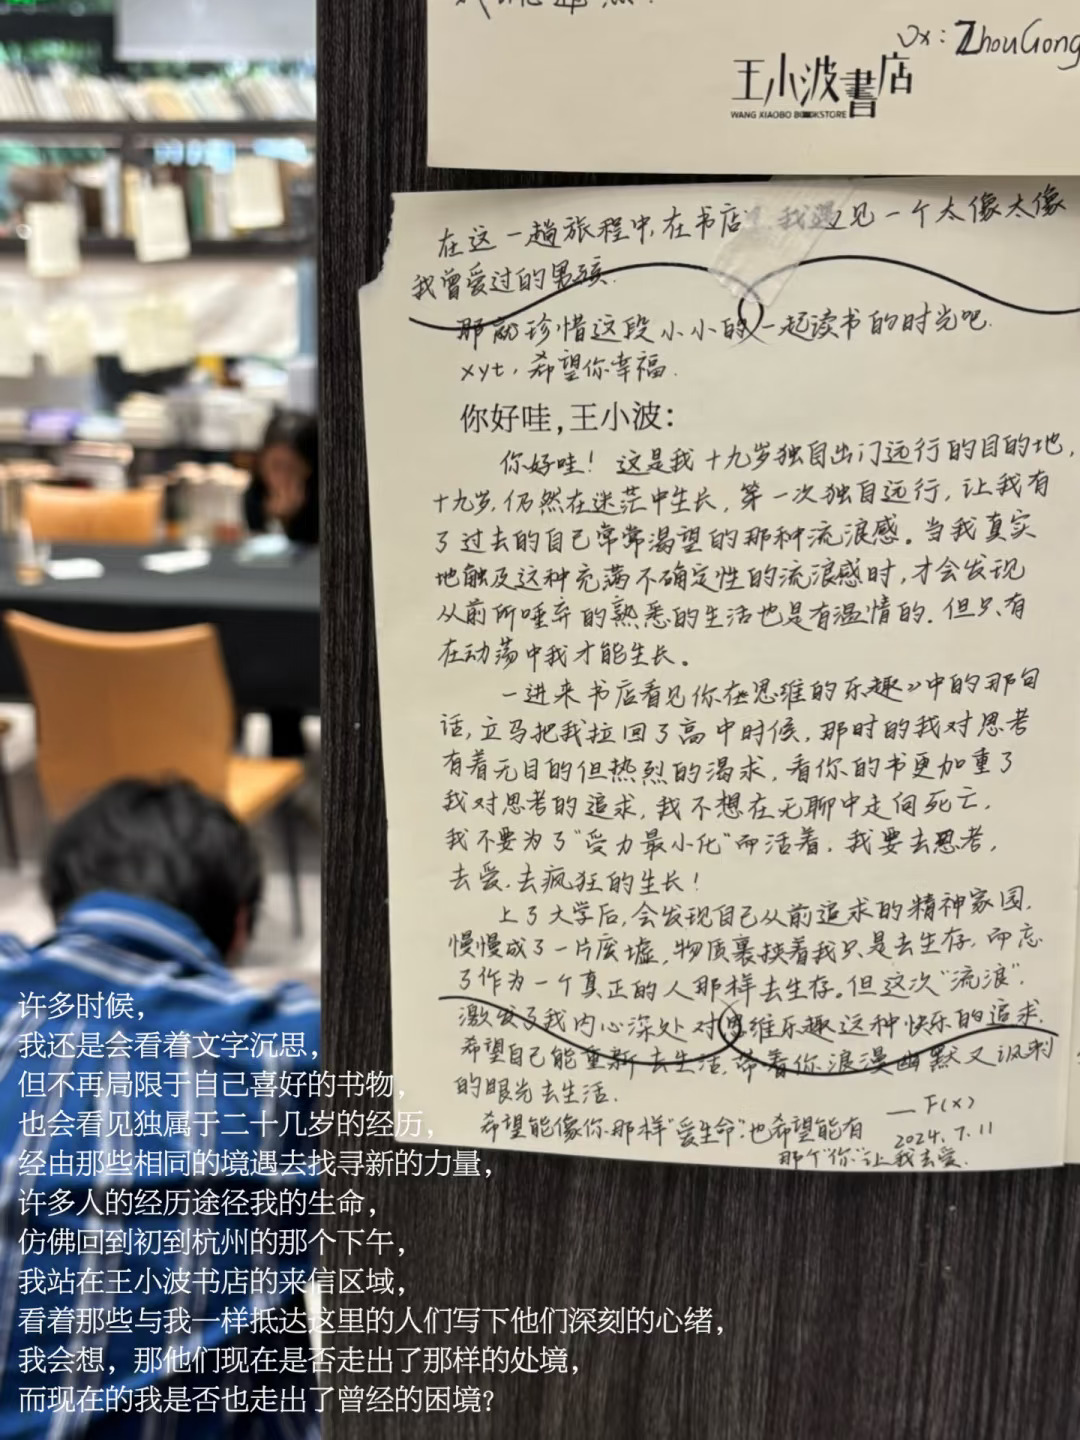 Vx: ZhouGong
王小波書店
WANG XIAOBO BOOKSTORE
在这一趟旅程中,在书店 我遇见一个太像太像
我曾爱过的男孩.
那就珍惜这段小小的一起读书的时光吧.
xyt,希望你幸福.
你好哇,王小波:
你好哇! 这是我十九岁独自出门远行的目的地,
十九岁,仍然在迷茫中生长,第一次独自远行,让我有
了过去的自己常常渴望的那种流浪感。当我真实
地触及这种充满不确定性的流浪感时,才会发现
从前所唾弃的熟悉的生活也是有温情的.但只有
在动荡中我才能生长。
一进来书店看见你在《思维的乐趣》中的那句
话,立马把我拉回了高中时候,那时的我对思考
有着无目的但热烈的渴求,看你的书更加重了
我对思考的追求,我不想在无聊中走向死亡,
我不要为了"受力最小化"而活着,我要去思考,
去爱.去疯狂的生长!
上了大学后,会发现自己从前追求的精神家园,
慢慢成了一片废墟,物质裹挟着我只是去生存,而忘
了作为一个真正的人那样去生存。但这次"流浪",
激发了我内心深处对思维乐趣这种快乐的追求.
希望自己能重新去生活,带着你浪漫幽默又讽刺
的眼光去生活.
希望能像你那样"爱生命",也希望能有
那个"你"让我去爱.
— F(x)
2024.7.11
许多时候，
我还是会看着文字沉思，
但不再局限于自己喜好的书物，
也会看见独属于二十几岁的经历，
经由那些相同的境遇去找寻新的力量，
许多人的经历途径我的生命，
仿佛回到初到杭州的那个下午，
我站在王小波书店的来信区域，
看着那些与我一样抵达这里的人们写下他们深刻的心绪，
我会想，那他们现在是否走出了那样的处境，
而现在的我是否也走出了曾经的困境？